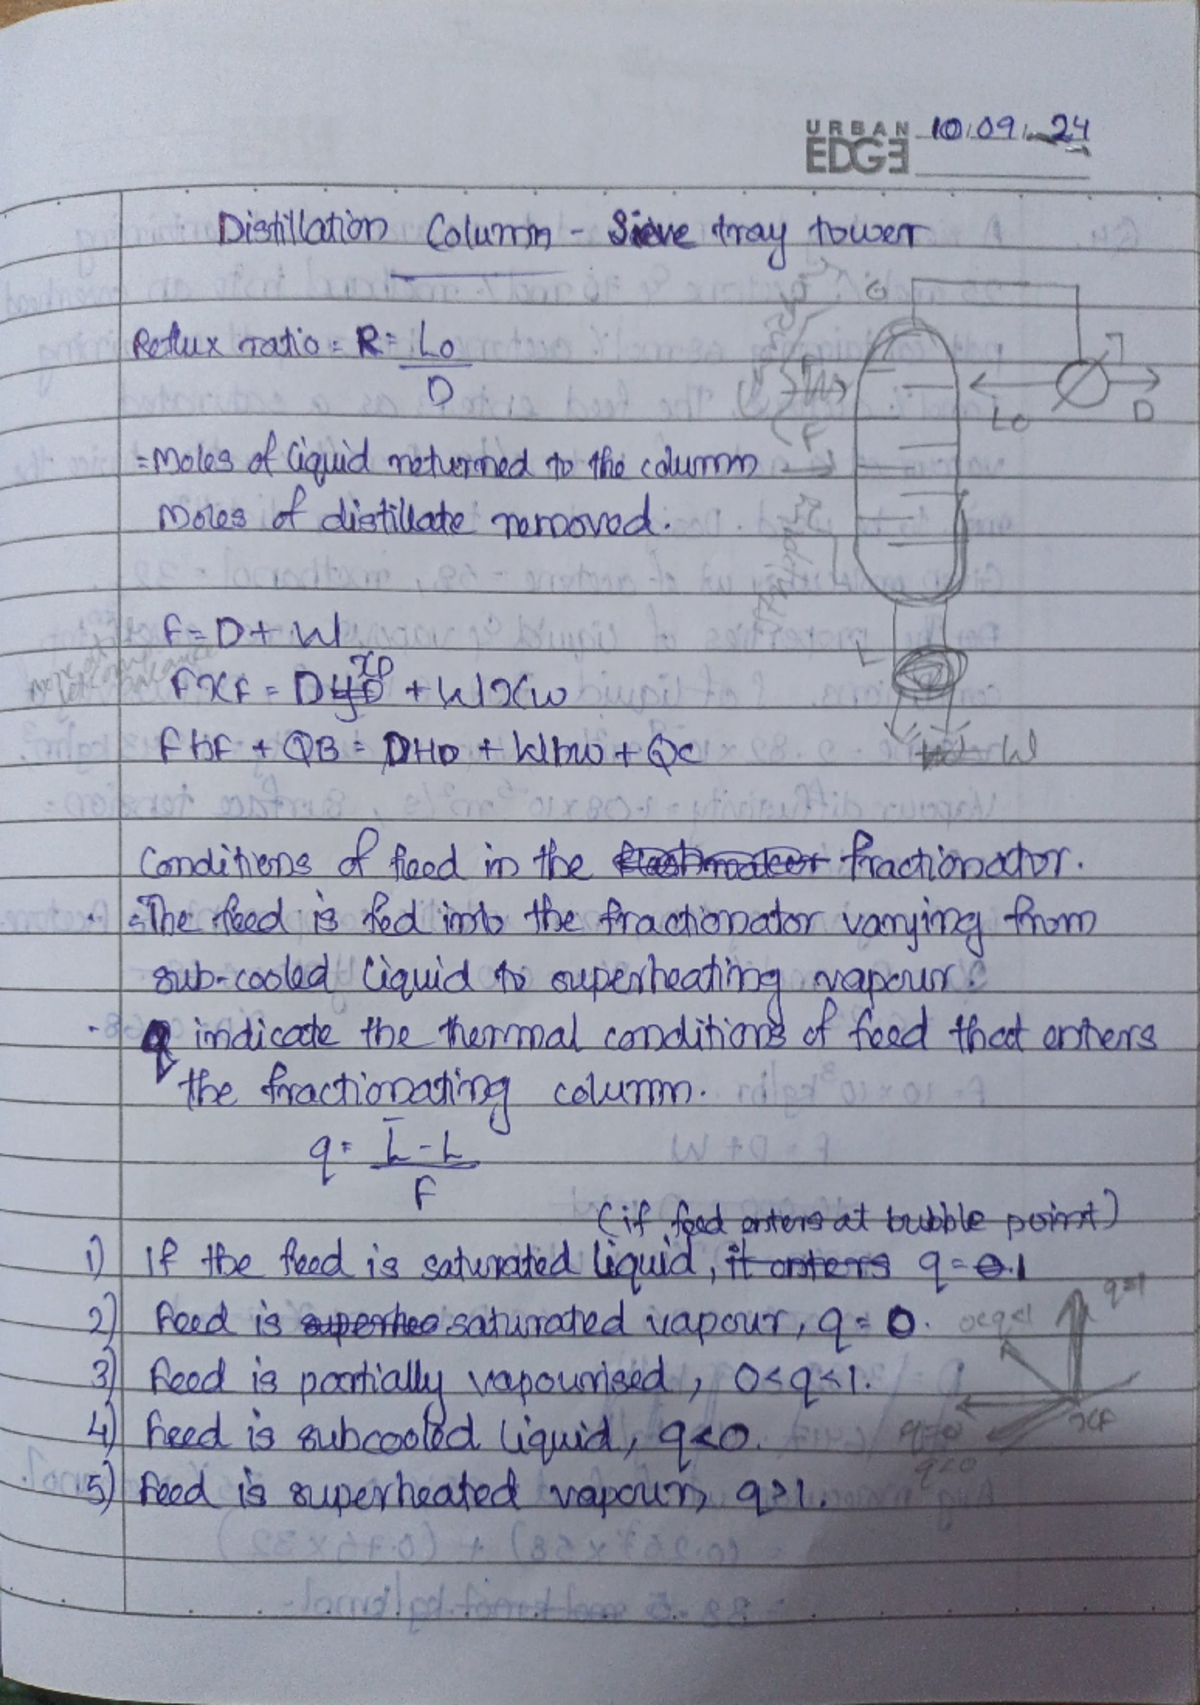 URBAN
EDGE 10.09.24
Distillation Column - Sieve tray tower
Reflux ratio = R = Lo
D
= Moles of liquid returned to the column
Moles of distillate removed.
G
F
Lo
D
F = D + W
FxF = DyD xD + Wxw
FhF + QB = DHD + Whw + Qc
W
Conditions of feed in the fractionator.
= The feed is fed into the fractionator varying from
sub-cooled liquid to superheating vapour.
q indicate the thermal conditions of feed that enters
the fractionating column.
q = L̄ - L
F
(if feed enters at bubble point)
1) If the feed is saturated liquid, it enters q = 0.1
2) Feed is superhea saturated vapour, q = 0.
3) Feed is partially vapourised, 0<q<1.
4) Feed is subcooled liquid, q<0.
5) Feed is superheated vapour, q>1.
q=1
0<q<1
xF
q=0
q<0